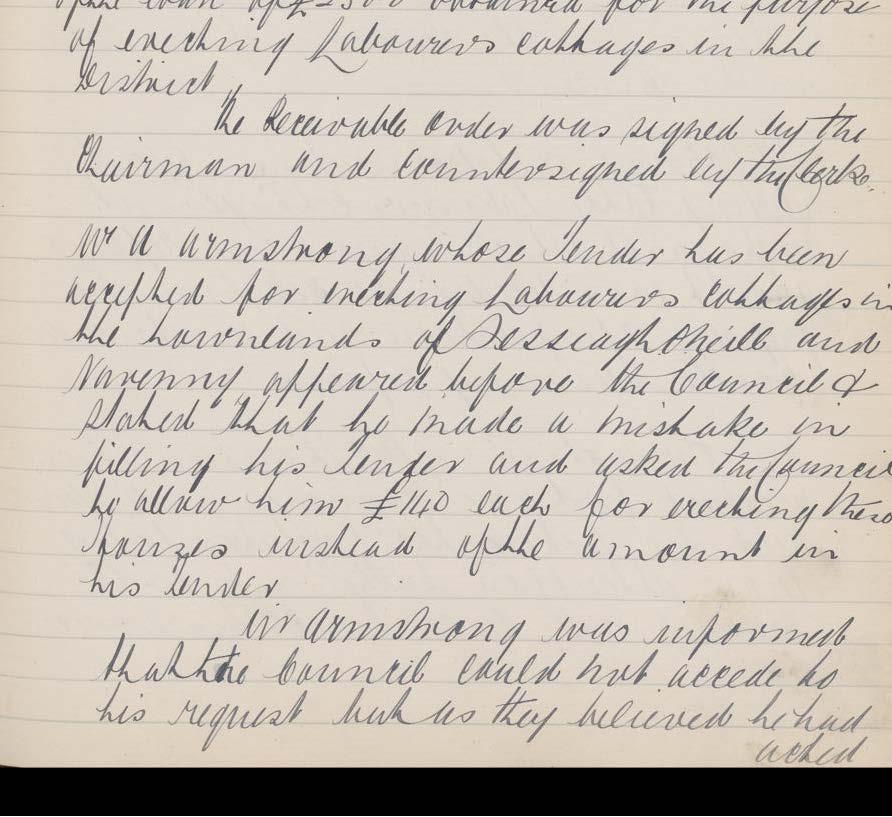 of the loan of £2500 obtained for the purpose
of erecting Labourers cottages in the
District
The Receivable Order was signed by the
Chairman and Countersigned by the Clerk.
Mr A Armstrong whose Tender has been
accepted for erecting Labourers Cottages in
the townlands of Sessiagh O'Neill and
Navenny appeared before the Council &
stated that he made a mistake in
filling his tender and asked the Council
to allow him £140 each for erecting these
houses instead of the amount in
his tender
Mr Armstrong was informed
that the Council could not accede to
his request but as they believed he had
acted